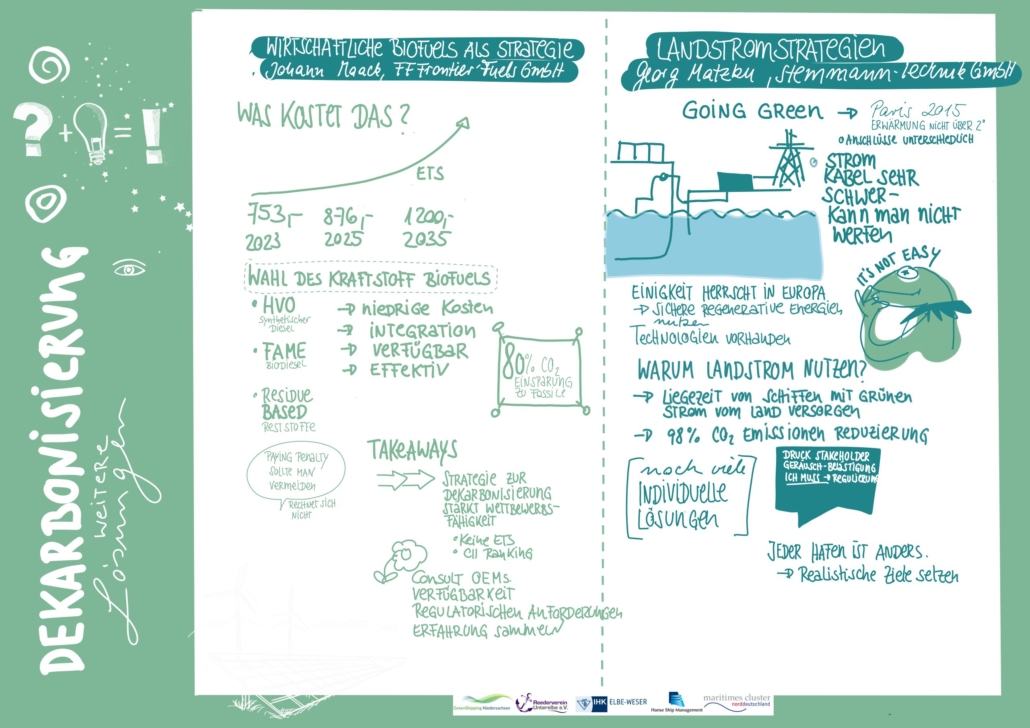 DEKARBONISIERUNG
weitere
Lösungen
? + = !
WIRTSCHAFTLICHE BIOFUELS ALS STRATEGIE
Johann Maack, FF Frontier Fuels GmbH
WAS KOSTET DAS?
ETS
753,- 876,- 1200,-
2023 2025 2035
WAHL DES KRAFTSTOFF BIOFUELS
• HVO
Synthetischer
Diesel
• FAME
BIODIESEL
• Residue
BASED
RESTSTOFFE
→ niedrige Kosten
→ INTEGRATION
→ VERFÜGBAR
→ EFFEKTIV
80% CO2
EINSPARUNG
ZU FOSSILE
PAYING PENALTY
SOLLTE MAN
VERMEIDEN
RECHNET SICH
NICHT
TAKEAWAYS
STRATEGIE ZUR
DEKARBONISIERUNG
STÄRKT WETTBEWERBS-
FÄHIGKEIT
• Keine ETS
• CII Ranking
CONSULT OEMs
VERFÜGBARKEIT
REGULATORISCHEN ANFORDERUNGEN
ERFAHRUNG sammeln
LANDSTROMSTRATEGIEN
Georg , Stemmann-Technik GmbH
GOING GREEN → Paris 2015
ERWÄRMUNG NICHT ÜBER 2°
ANSCHLÜSSE UNTERSCHIEDLICH
STROM
KABEL SEHR
SCHWER-
KANN MAN NICHT
WERFEN
IT'S NOT EASY
EINIGKEIT HERRSCHT IN EUROPA
→ SICHERE REGENERATIVE ENERGIEN
nutzen
TECHNOLOGIEN VORHANDEN
WARUM LANDSTROM NUTZEN?
→ LIEGEZEIT VON SCHIFFEN MIT GRÜNEN
STROM VOM LAND VERSORGEN
→ 98% CO2 EMISSIONEN REDUZIERUNG
noch viele
INDIVIDUELLE
LÖSUNGEN
DRUCK STAKEHOLDER
GERÄUSCH-BELÄSTIGUNG
ICH MUSS → REGULIERUNG
JEDER HAFEN IST ANDERS.
→ Realistische Ziele setzen
GreenShipping Niedersachsen
Reederverein
Unterelbe e.V.
IHK ELBE-WESER
Hanse Ship Management
maritimes cluster
norddeutschland